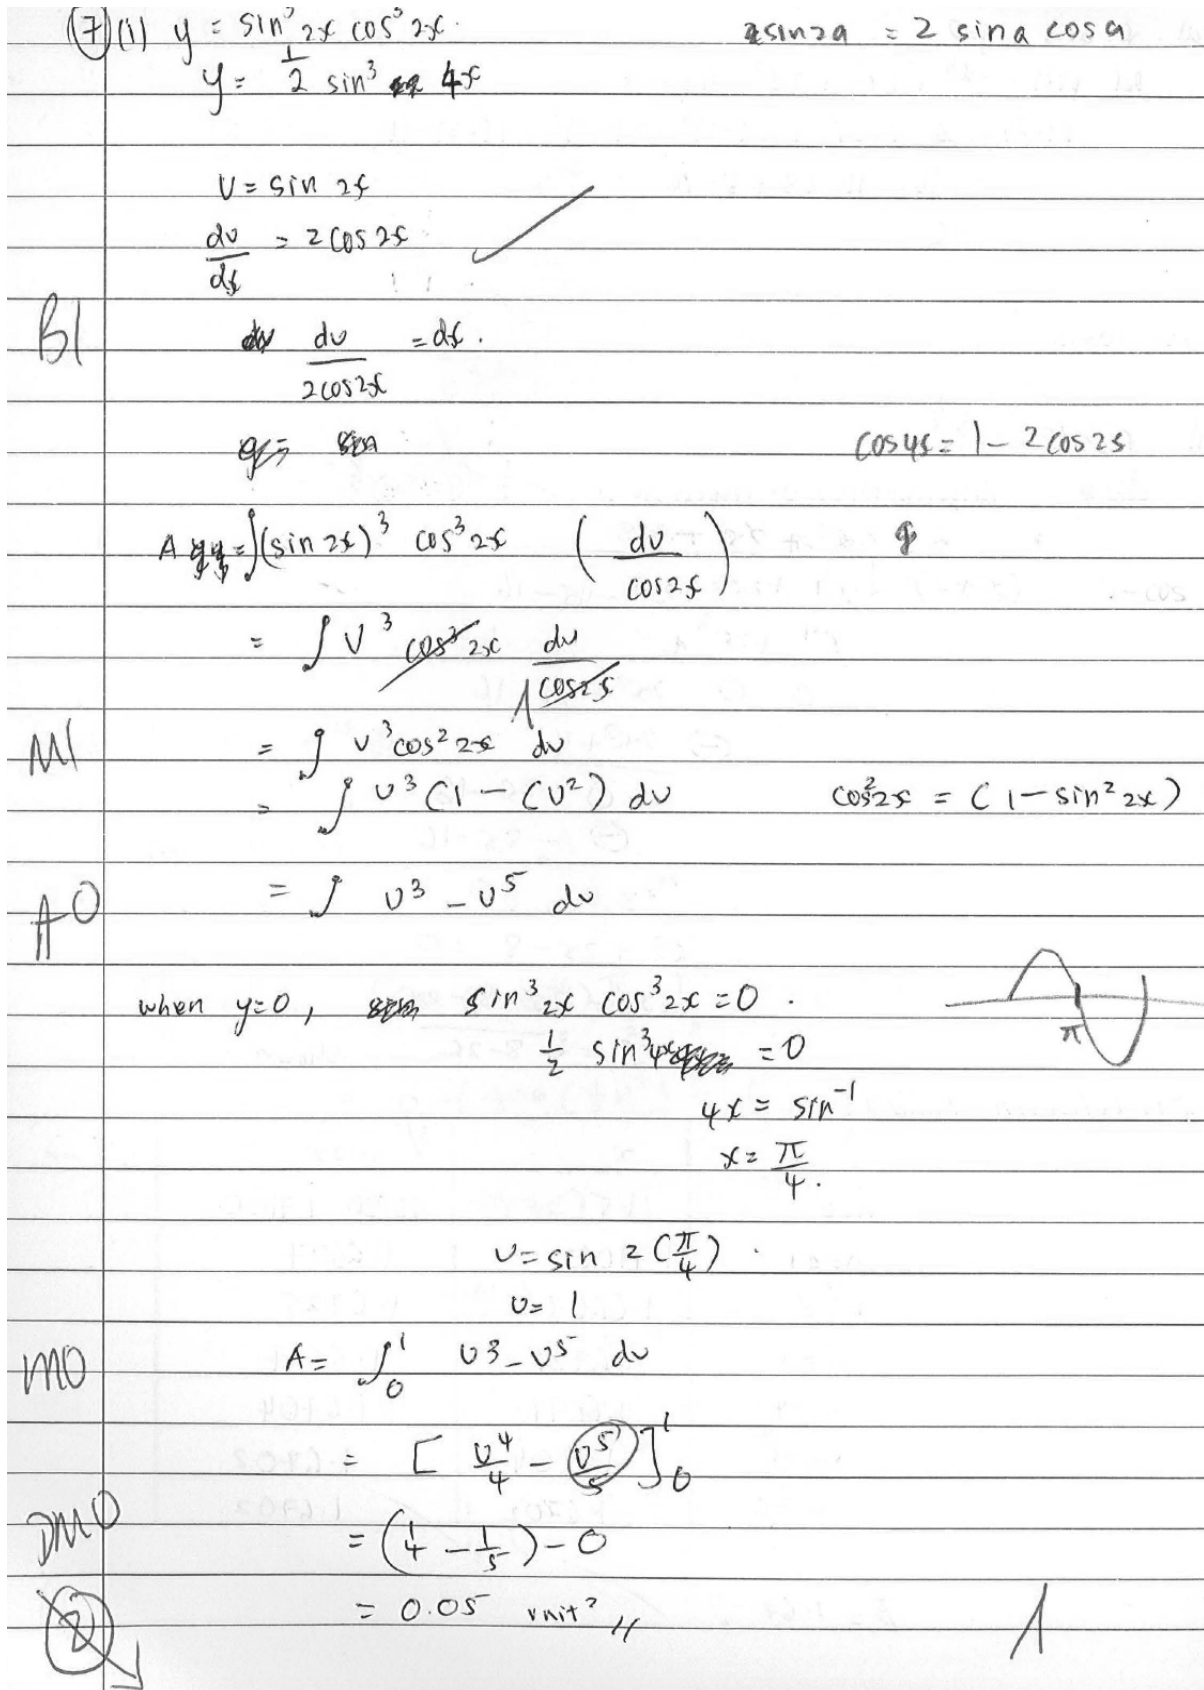 (7) (i) y = sin³ 2x cos³ 2x. sin2a = 2 sina cosa
y = 1/2 sin³ 4x
U = sin 2x
du/dx = 2 cos 2x
B1
du/2cos2x = dx.
cos4x = 1 - 2cos2x
A = ∫(sin 2x)³ cos³ 2x (du/cos2x)
= ∫ U³ cos³ 2x du/cos2x
M1 = ∫ U³ cos² 2x du
= ∫ U³ (1 - (U²) du cos²2x = (1 - sin² 2x)
A0 = ∫ U³ - U⁵ du
when y=0, sin³ 2x cos³ 2x = 0.
1/2 sin³ 4x = 0
π
4x = sin⁻¹
x = π/4.
U = sin 2(π/4).
U = 1
M0 A = ∫₀¹ U³ - U⁵ du
= [U⁴/4 - U⁵/5]₀¹
DM0 = (1/4 - 1/5) - 0
= 0.05 unit² //
2 1